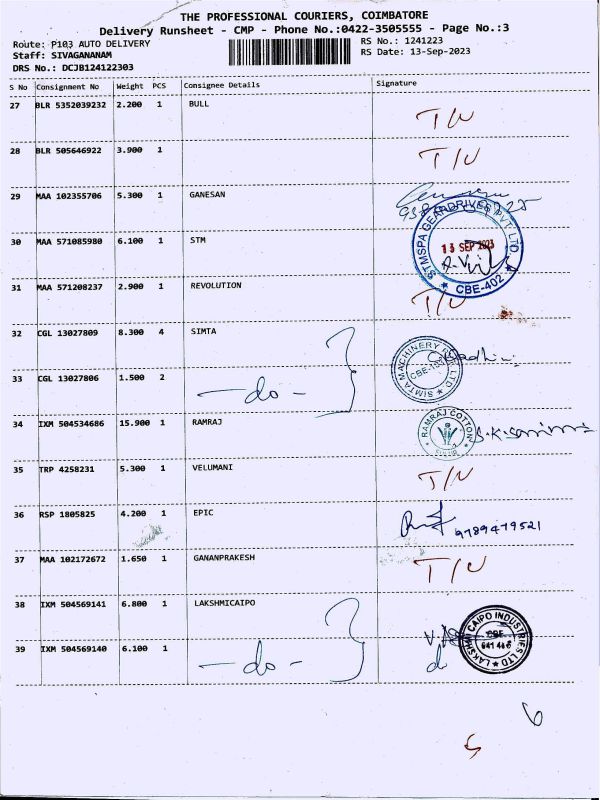 THE PROFESSIONAL COURIERS, COIMBATORE
Delivery Runsheet - CMP - Phone No.:0422-3505555 - Page No.:3
Route: P103 AUTO DELIVERY
RS No.: 1241223
Staff: SIVAGANANAM
RS Date: 13-Sep-2023
DRS No.: DCJB124122303
S No Consignment No Weight PCS Consignee Details Signature
27 BLR 5352039232 2.200 1 BULL T/N
28 BLR 505646922 3.900 1 T/N
29 MAA 102355706 5.300 1 GANESAN
30 MAA 571085980 6.100 1 STM
STMSPA GEARDRIVES PVT. LTD
13 SEP 2023
CBE-402
31 MAA 571208237 2.900 1 REVOLUTION T/N
32 CGL 13027809 8.300 4 SIMTA
SIMTA MACHINERY PVT. LTD
33 CGL 13027806 1.500 2 -do-
34 IXM 504534686 15.900 1 RAMRAJ
RAMRAJ COTTON
35 TRP 4258231 5.300 1 VELUMANI T/N
36 RSP 1805825 4.200 1 EPIC
9789479521
37 MAA 102172672 1.650 1 GANANPRAKESH T/N
38 IXM 504569141 6.800 1 LAKSHMICAIPO
LAKSHMI CAIPO INDUSTRIES LTD
CBE
641 406
39 IXM 504569140 6.100 1 -do-